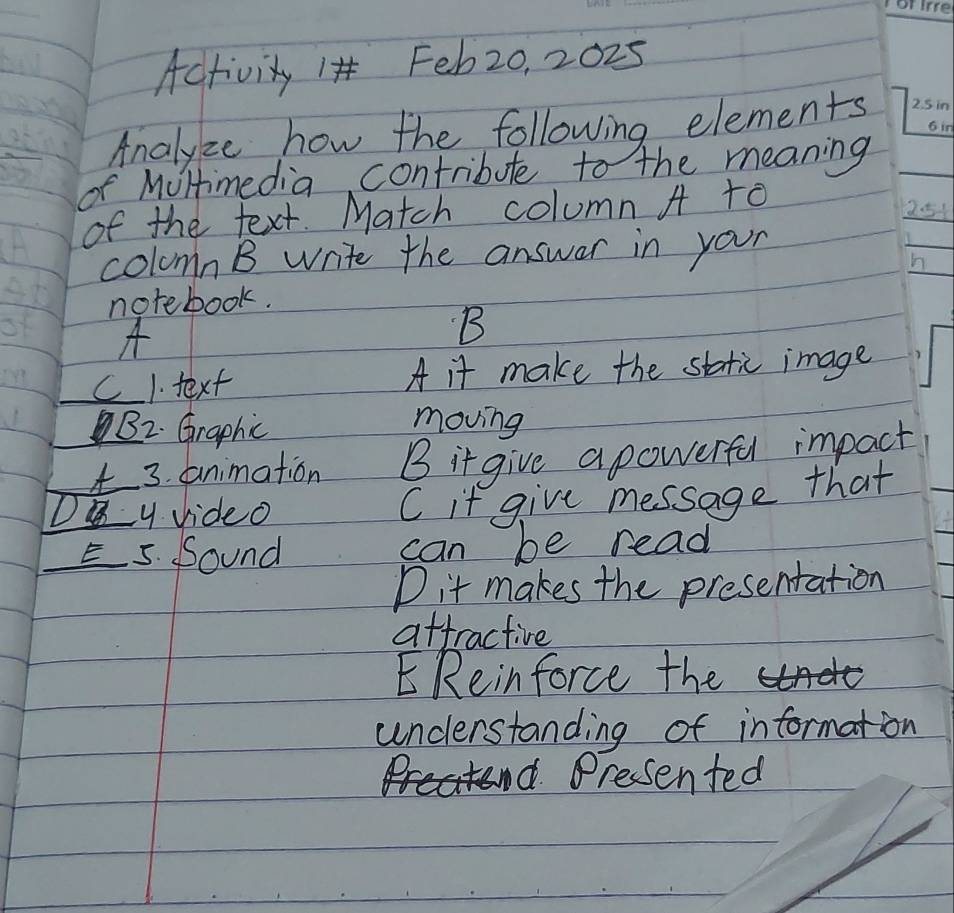 Activity 1# Feb 20, 2025
Analyze how the following elements
of Multimedia contribute to the meaning
of the text. Match column A to
column B write the answer in your
notebook.
A B
C 1. text A it make the static image
B 2. Graphic moving
A 3. animation B it give a powerful impact
D 4 video C it give message that
E 5. Sound can be read
D it makes the presentation
attractive
E Reinforce the
understanding of information
Presented
of Irre
2.5 in
6 in
2.5
h